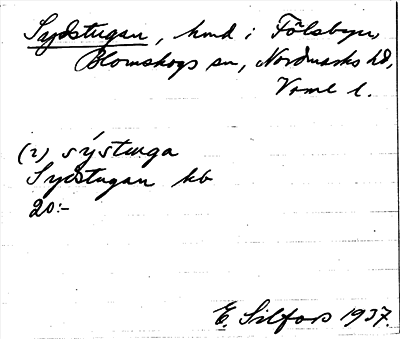 Sydstugan, hmd i Fölsbyn,
Blomskogs sn, Nordmarks hd,
Vrml l.
(2) sýstuga
Sydstugan kb
20:-
E. Silfors 1937.